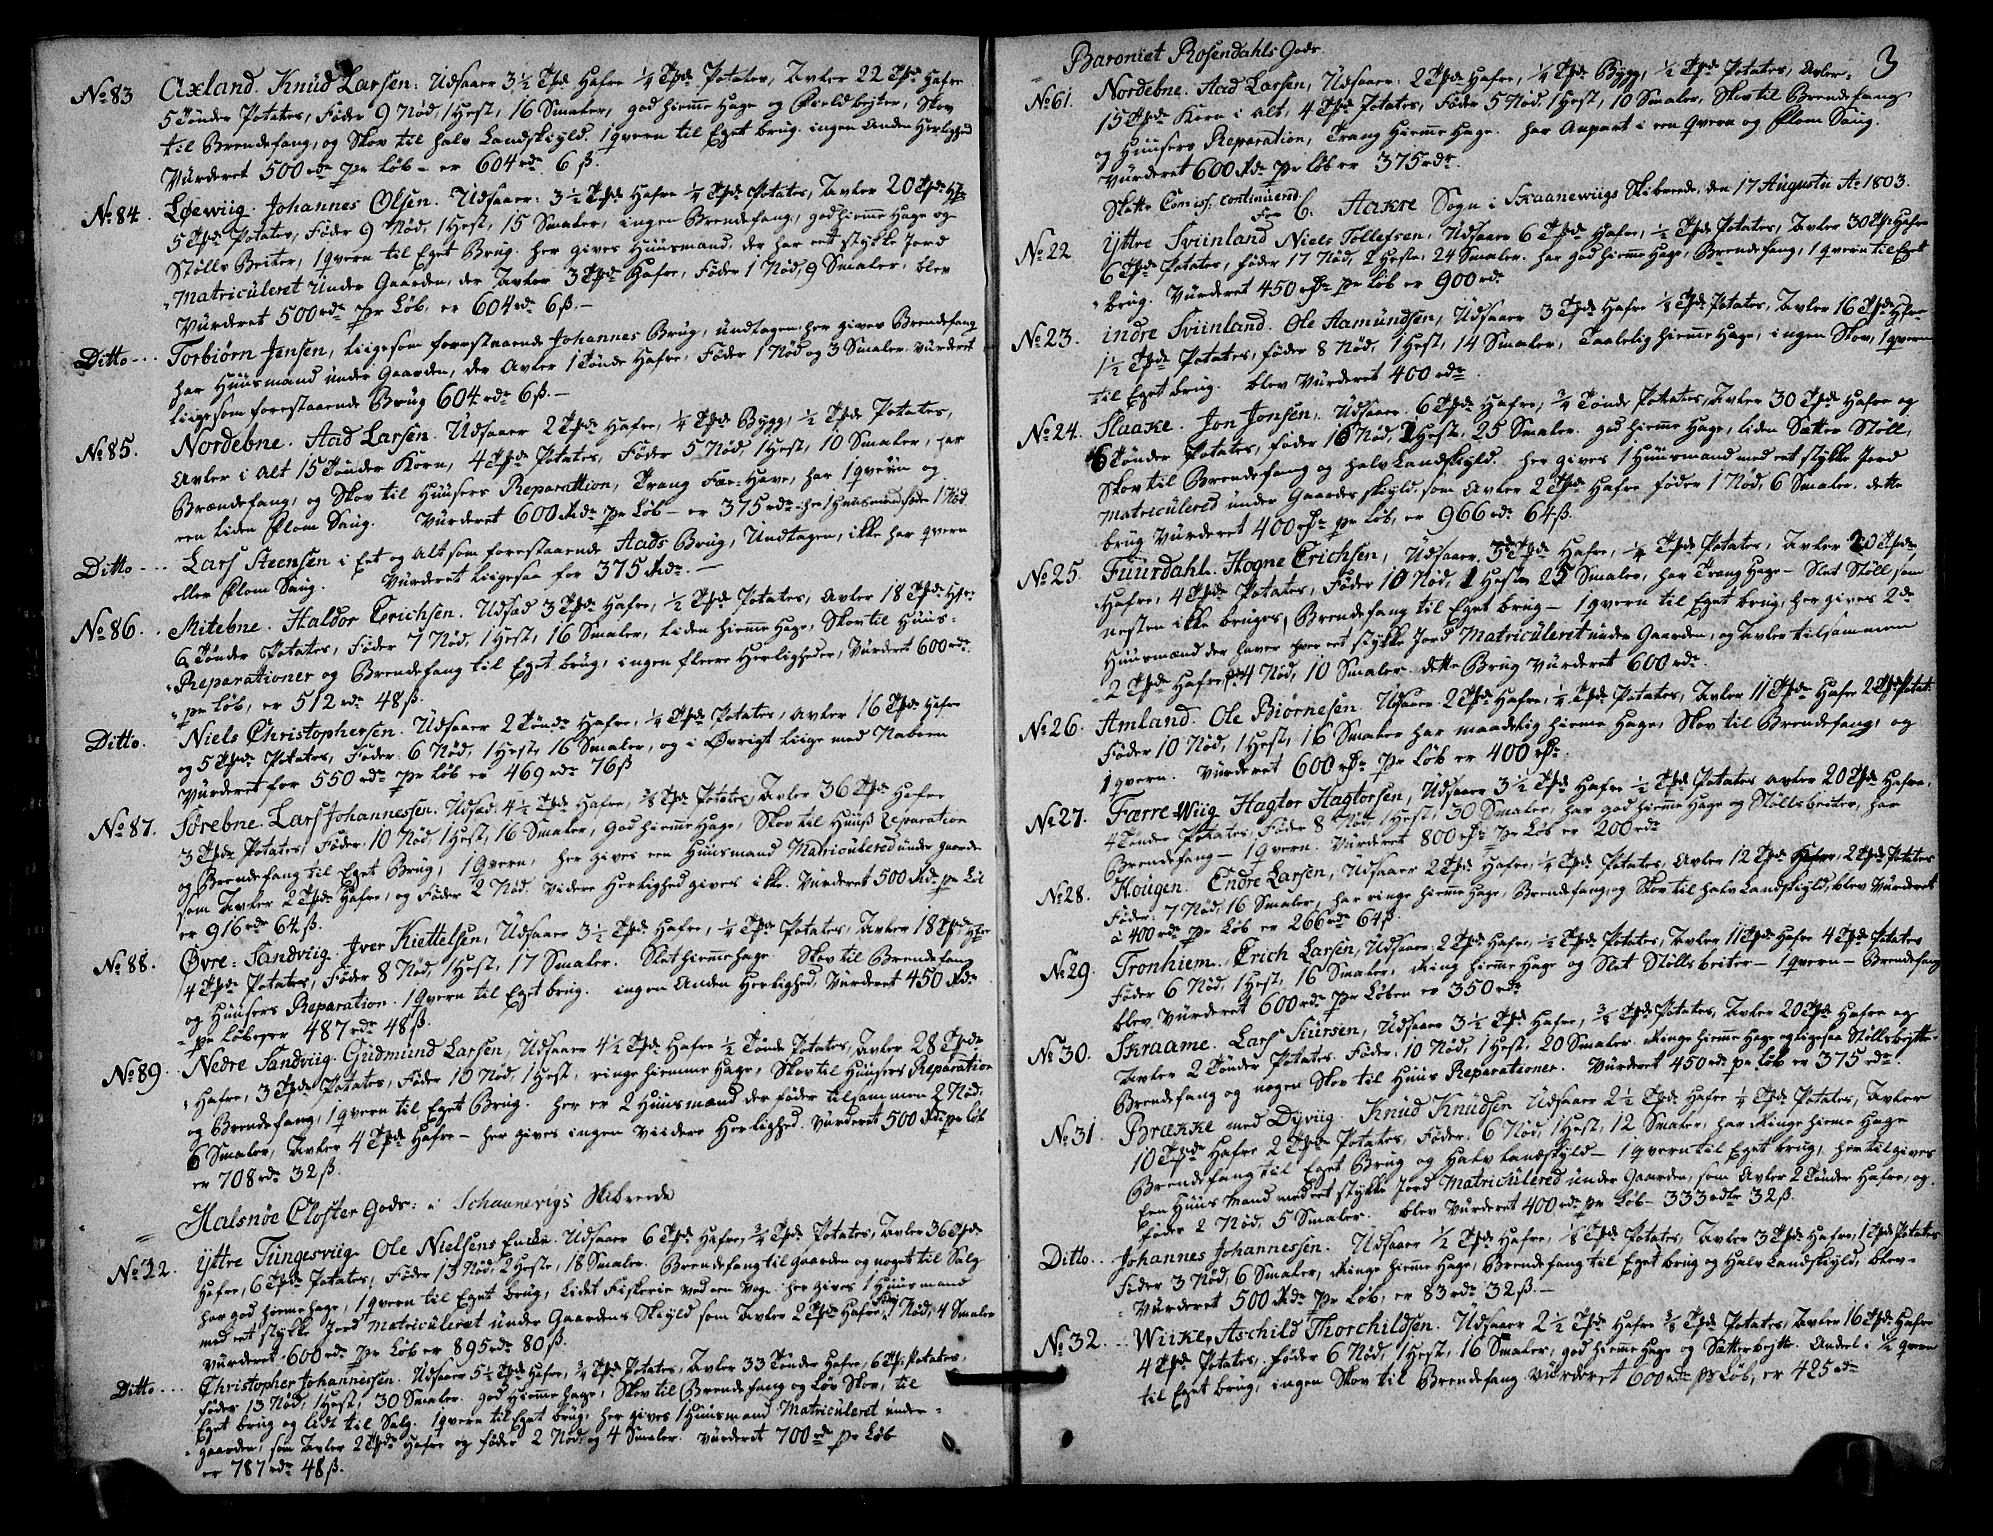 No 83 Axland. Knud Larsen: Udsaaer 3½ Tpd Hafre ¼ Tpd Potates, Avler 22 Tpd Hafre
5 Tønder Potates, Føder 9 Nød, 1 Hest, 16 Smaler, god hieme Hage og Field beiter, Skov
til Brendefang, og Skov til halv Landskyld. 1 qvern til Eget brug. ingen Anden Herlighed
Vurderet 500 rd pr Løb - er 604 rd 6 ß.
No 84. Løewiig. Johannes Olsen. Udsaaer: 3½ Tpd Hafre ¼ Tpd Potates, Avler 20 Tpd Hfr
5 Tpd Potates, Føder 9 Nød, 1 Hest, 15 Smaler, ingen Brendefang, god hieme Hage og
Stølls Beiter, 1 qvern til Eget Brug. her gives Huusmand, der har eet stykke Jord
Matriculeret under Gaarden, der Avler 3 Tpd Hafre, Føder 1 Nød, 9 Smaler, blev
Vurderet 500 rd pr Løb, er 604 rd 6 ß. -
Ditto --- Torbiørn Jensen, liigesom forestaaende Johannes Brug, undtagen, her gives Brendefang
har Huusmand under Gaarden, der Avler 1 Tønde Hafre, Føder 1 Nød og 3 Smaler. Vurderet
liigesom forestaaende Brug 604 rd 6 ß. -
No 85. Nordebne. Aad Larsen. Udsaaer 2 Tpd Hafre, ¼ Tpd Bygg, ½ Tpd Potates,
Avler i Alt 15 Tønder Korn, 4 Tpd Potates, Føder 5 Nød, 1 Hest, 10 Smaler, har
Brendefang, og Skov til Huusers Reparattion, Trang Fæe-Have, har 1 qvern og
een liden Flom Saug. Vurderet 600 Rd pr Løb - er 375 rd. her 1 Huusmand føde 1 Nød
Ditto --- Lars Steensen i Eet og Alt som forestaaende Aads Brug, Undtagen, ikke har qvern
eller Flom Saug. Vurderet liigesaa for 375 Rd. -
No 86. Mitebne. Haldor Erichsen. Udsad 3 Tpd Hafre, ½ Tpd Potates, Avler 18 Tpd Hfr.
6 Tønder Potates, Føder 7 Nød, 1 Hest, 16 Smaler, liden hieme Hage, Skov til Huus-
Reparationer og Brendefang til Eget brug, ingen fleere Herligheder, Vurderet 600 rd
pr Løb, er 512 rd 48 ß.
Ditto. Niels Christophersen. Udsaaer 2 Tønd Hafre, ¼ Tpd Potates, Avler 16 Tpd Hafre
og 5 Tpd Potates, Føder 6 Nød, 1 Hest, 16 Smaler, og i Øvrigt liige med Naboen
Vurderet for 550 rd pr Løb er 469 rd 76 ß
No 87. Sørebne. Lars Johannessen. Udsad: 4½ Tpd Hafre, ⅜ Tpd Potates, Avler 36 Tpd Hafre
3 Tpd Potates, Føder: 10 Nød, 1 Hest, 16 Smaler, God hieme Hage, Skov til Huuß Reparation
og Brendefang til Eget Brug, 1 Qvern, her gives een Huusmand Matriculered under gaarden
som Avler 2 Tpd Hafre, og Føder 2 Nød. Videre Herlighed gives ikke. Vurderet 500 Rd pr Løb
er 916 rd 64 ß.
No 88. Øvre: Sandviig. Iver Kiettelsen, Udsaaer 3½ Tpd Hafre, ¼ Tpd Potates, Avler 18 Tpd Hfr
4 Tpd Potates, Føder 8 Nød, 1 Hest, 17 Smaler. Slet hieme hage. Skov til Brendefang
og Huusers Reparation. 1 qvern til Eget brug. ingen Anden Herlighed, Vurderet 450 Rd
pr Løb, er 487 rd 48 ß.
No 89. Nedre Sandviig. Gudmund Larsen, Udsaaer 4½ Tpd Hafre ½ Tønde Potates, Avler 28 Tpd
Hafre, 3 Tpd Potates, Føder 10 Nød, 1 Hest, ringe hiemme Hage, Skov til Huusers Reparation
og Brendefang, 1 qvern til Eget Brug. her er 2 Huusmænd der føder tilsammen 2 Nød,
6 Smaler, Avler 4 Tpd Hafre - her gives ingen Viidere Herlighed. Vurderet 500 Rd pr Løb
er 708 rd 32 ß.
Halsnøe Closter Gods: i Schaanevigs Skibrede
No 22. Yttre Tungesviig. Ole Nielsens Encke. Udsaaer 6 Tpd Hafre, ¾ Tpd Potates, Avler 36 Tpd
Hafre, 6 Tpd Potates, Føder 13 Nød, 2 Heste, 18 Smaler. Brendefang til Gaarden og noget til Salg
har god hieme hage, 1 qvern til Eget brug, lidet Fiskerie ved een Vog. her gives 1 Huusmand
med eet stykke Jord Matriculeret under Gaardens Skyld som Avler 2 Tpd Hafre, føder 1 Nød, 4 Smaler
Vurderet 600 rd pr Løb er 895 rd 80 ß.
Ditto --- Christopher Johannessen. Udsaaer 5½ Tpd Hafre, ¾ Tpd Potates, Avler 33 Tønder Hafre, 6 Tpd Potates,
føder 13 Nød, 1 Hest, 30 Smaler. god Hieme hage, Skov til Brendefang og Løv Skov, til
Eget brug og lidt til Salg. 1 qvern til Eget brug, her gives 1 Huusmand Matriculeret under-
gaarden, som Avler 2 Tpd Hafre og føder 2 Nød, og 4 Smaler. Vurderet 700 rd pr Løb
er 787 rd 48 ß.
Baroniet Rosendahls Gods. 3
No 61. Nordebne. Aad Larsen, Udsaaer: 2 Tpd Hafre, ¼ Tpd Bygg, ½ Tpd Potates, Avler-
15 Tpd Korn i Alt, 4 Tpd Potates, Føder 5 Nød, 1 Hest, 10 Smaler, Skov til Brendefang
og Huusers Reparation, Trang Hieme Hage. har Anpart i een qvern og Flom Saug.
Vurderet 600 Rd pr Løb er 375 rd.
Skatte Comiss: continuered for C. Aakre Sogn i Skaanewiigs Skibrede, den 17 Augusti Ao 1803.
No 22 Yttre Sviinland Niels Tollefsen, Udsaaer 6 Tpd Hafre, ½ Tpd Potates, Avler 30 Tpd Hafre
6 Tpd Potates, føder 17 Nød, 2 Heste, 24 Smaler. har god hieme Hage, Brendefang, 1 qvern til Eget
brug. Vurderet 450 rd pr Løb er 900 rd
No 23. indre Sviinland. Ole Aamundsen, Udsaaer 3 Tpd Hafre ⅛ Tpd Potates, Avler 16 Tpd Hafre
1½ Tpd Potates, føder 8 Nød, 1 Hest, 14 Smaler, Taalelig hieme Hage, ingen Skov, 1 qvern
til Eget brug. blev Vurderet 400 rd.
No 24. Slaake. Jon Jonsen, Udsaaer 6 Tpd Hafre, ¾ Tønde Potates, Avler 30 Tpd Hafre og
6 Tønder Potates, føder 16 Nød, 1 Hest, 25 Smaler. god hieme Hage, liden Sætter Støll,
Skov til Brendefang og halv Landskyld. her gives 1 Huusmand med eet stykke Jord
Matriculered under Gaardes skyld, som Avler 2 Tpd Hafre føder 1 Nød, 6 Smaler. dette
brug Vurderet 400 rd pr Løb, er 966 rd 64 ß.
No 25. Fuurdahl. Hogne Erichsen, Udsaaer 3 Tpd Hafre, ¼ Tpd Potates, Avler 20 Tpd
Hafre, 4 Tpd Potates, Føder 10 Nød, 1 Hest 25 Smaler, har Trang Hage - Slet Støll som
nesten ikke bruges, Brendefang til Eget brug - 1 qvern til Eget brug, her gives 2de
Huusmænd der haver hver eet stykke Jord Matriculeret under Gaarden, og Avler tilsammen
2 Tpd Hafre, 4 Nød, 10 Smaler. dette Brug Vurderet 600 rd.
No 26. Amland. Ole Biørnesen. Udsaaer 2 Tpd Hafre, ¼ Tpd Potates, Avler 11 Tpd Hafre 2 Tpd Potat.
Føder 10 Nød, 1 Hest, 16 Smaler har maadelig hieme Hage, Skov til Brendefang, og
1 qvern. Vurderet 600 rd pr Løb er 400 rd.
No 27. Færre-Wiig Hagtor Hagtorsen, Udsaaer 3½ Tpd Hafre ½ Tpd Potates Avler 20 Tpd Hafre,
4 Tønder Potates, Føder 8 Nød, 1 Hest, 30 Smaler, har god hieme Hage og Støllsbeiter, har
Brendefang - 1 qvern. Vurderet 800 rd pr Løb er 200 rd
No 28. Hougen. Endre Larsen, Udsaaer 2 Tpd Hafre, ¼ Tpd Potates, Avler 12 Tpd Hafre, 2 Tpd Potates
Føder: 7 Nød, 16 Smaler, har ringe hieme Hage, Brendefang og Skov til halv Landskyld, blev Vurderet
à 400 rd pr Løb er 266 rd 64 ß.
No 29. Tronhiem. Erich Larsen, Udsaaer 2 Tpd Hafre, ½ Tpd Potates, Avler 11 Tpd Hafre 4 Tpd Potates
Føder 6 Nød, 1 Hest, 16 Smaler, Ring hieme Hage og Slet Stølls beiter - 1 qvern - Brendefang
blev Vurderet 600 rd pr Løben er 350 rd
No 30. Skraame. Lars Siursen, Udsaaer 3½ Tpd Hafre, ⅜ Tpd Potates, Avler 20 Tpd Hafre og
Avler 2 Tønder Potates. Føder: 10 Nød, 1 Hest, 20 Smaler Ringe hieme Hage og ligesaa Støllsbeytte-
Brendefang og nogen Skov til Huus Reparationer. Vurderet 450 rd pr Løb er 375 rd
No 31. Brække med Dyviig. Knud Knudsen Udsaaer 2½ Tpd Hafre ¼ Tpd Potates, Avler
10 Tpd Hafre 2 Tpd Potates, Føder: 6 Nød, 1 Hest, 12 Smaler, har Ringe hieme Hage
Brendefang til Eget Brug og Halv Landskyld - 1 qvern til Eget brug, hertil gives
Een Huusmand med eet stykke Jord Matriculered under Gaarden, som Avler 2 Tønder Hafre, og
føder 2 Nød, 5 Smaler. blev Vurderet 400 rd pr Løb - 333 rdlr 32 ß.
Ditto -- Johannes Johannessen. Udsaaer ½ Tpd Hafre, ⅛ Tpd Potates, Avler 3 Tpd Hafre, 1 Tpd Potates
Føder 3 Nød, 6 Smaler, Ringe hieme Hage, Brendefang til Eget brug og Halv Landskyld, blev-
Vurderet 500 Rd pr Løb, er 83 rd 32 ß. -
No 32. -- Wiike, Aschild Thorchildsen. Udsaaer 2½ Tpd Hafre ⅜ Tpd Potates, Avler 16 Tpd Hafre
4 Tpd Potates, føder 6 Nød, 1 Hest, 16 Smaler, god hieme Hage og Sætterbeytte. Andeel i ½ qvern
til Eget brug, ingen Skov til Brendefang Vurderet 600 rd pr Løb, er 425 rd